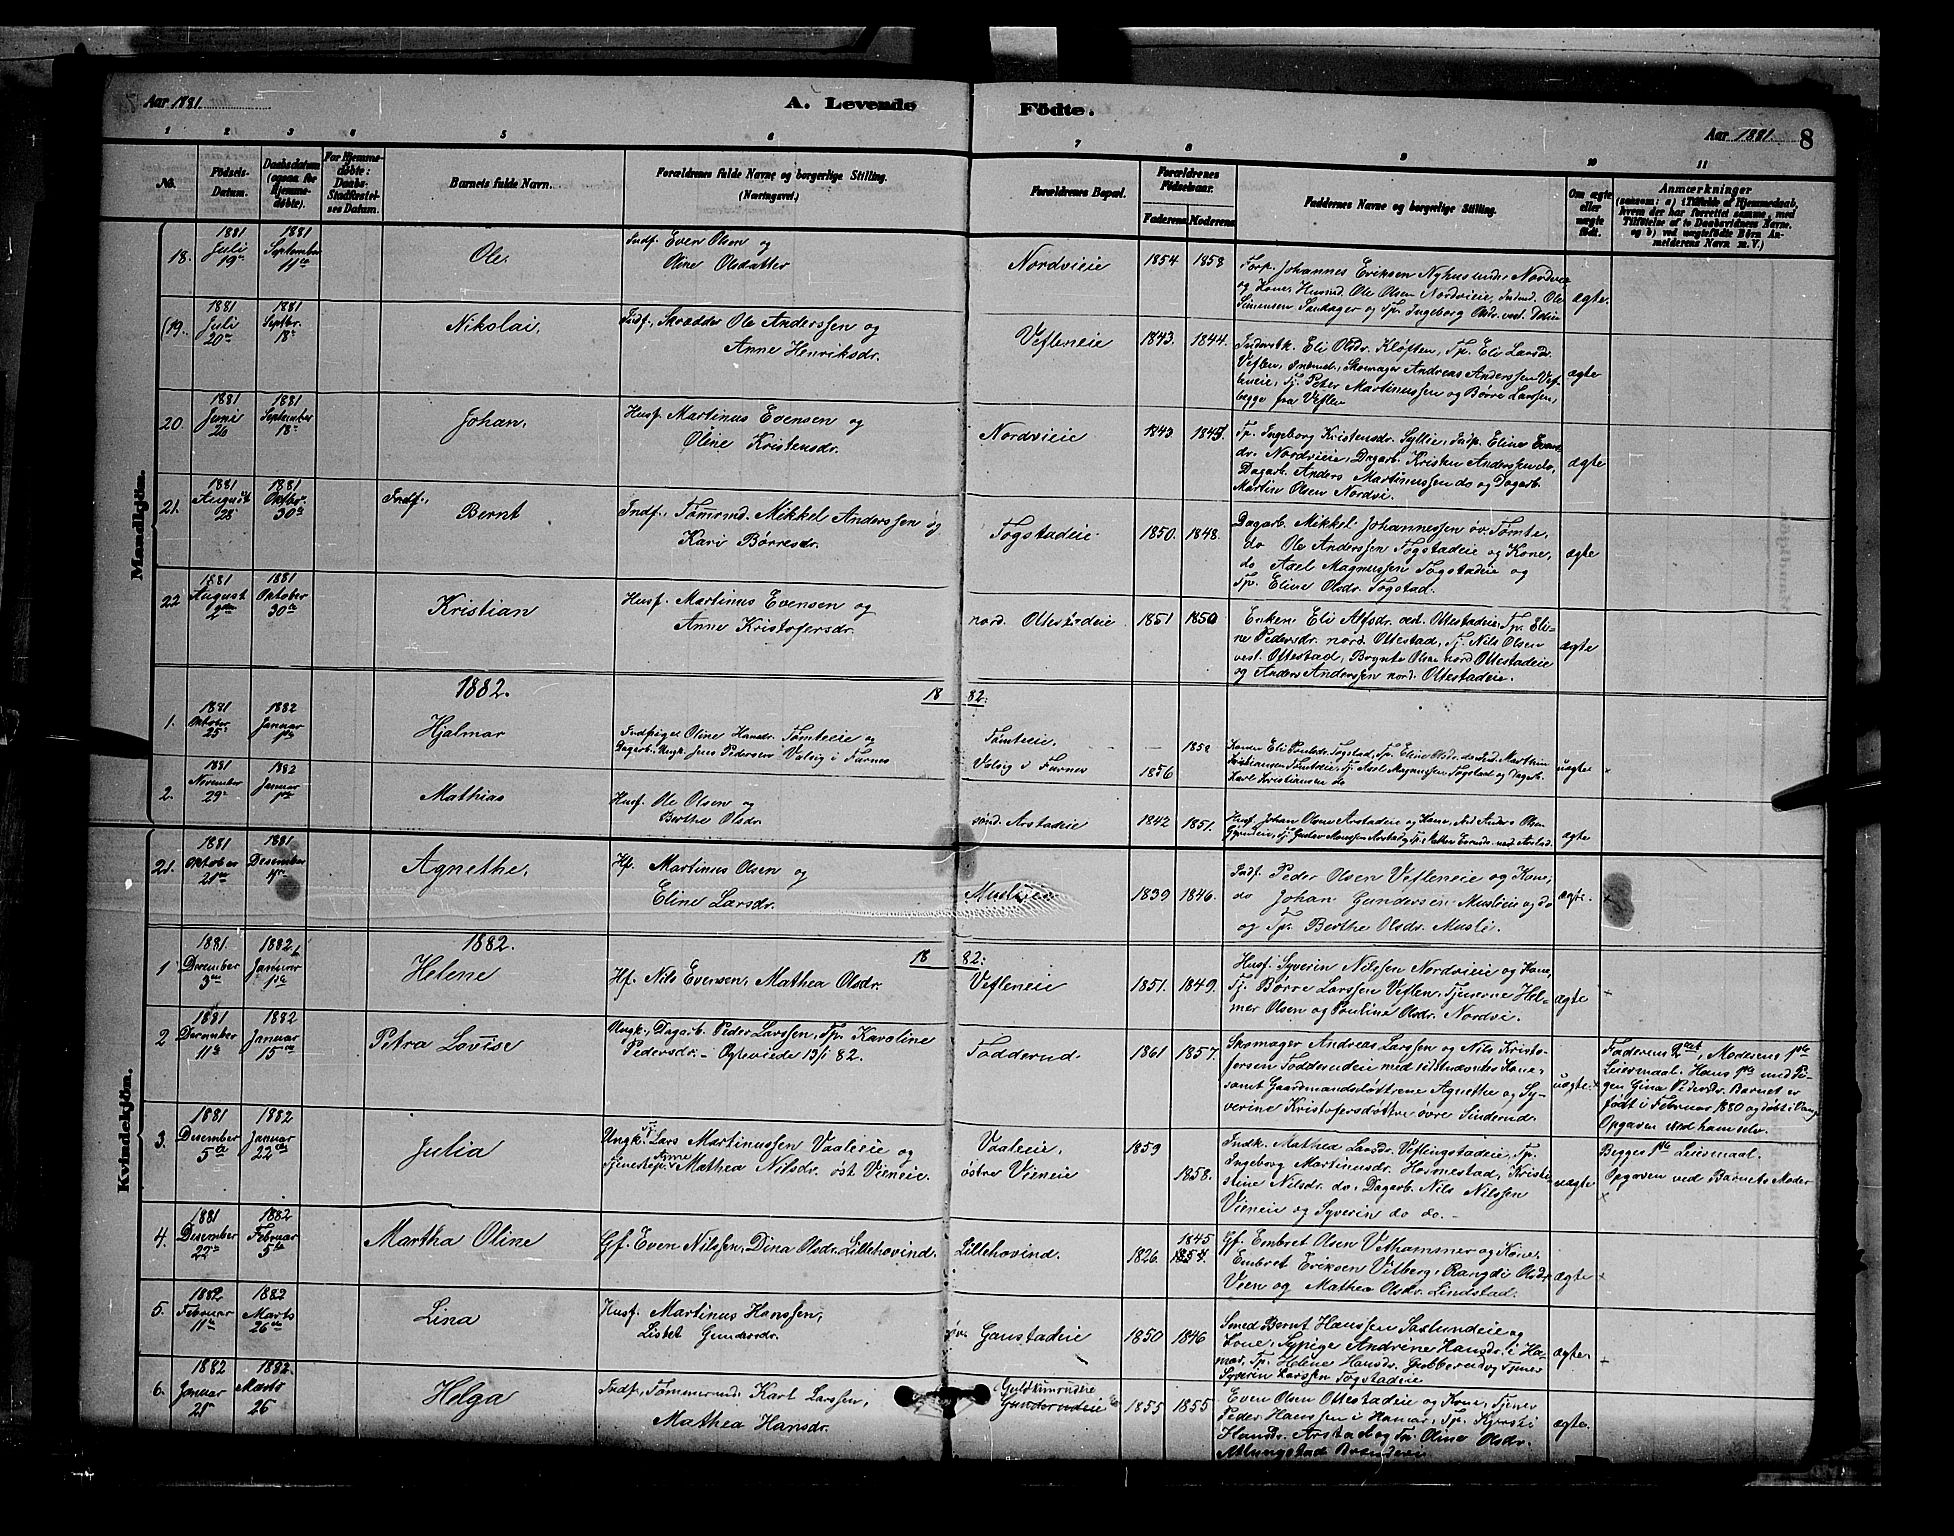 Aar 1881.
A. Levende Födte.
Aar 1881. 8
1 2 3 4 5 6 7 8 9 10 11
No.
Födsels-Datum.
Daabsdatum (ogsaa for Hjemme-døbte).
For Hjemme-døbte: Daabs-Stadfæstel-ses Datum.
Barnets fulde Navn.
Forældrenes fulde Navne og borgerlige Stilling. (Næringsvei.)
Forældrenes Bopæl.
Forældrenes Fødselsaar.
Faderens Moderens
Faddernes Navne og borgerlige Stilling.
Om ægte eller uægte født.
Anmærkninger
(saasom: a) i Tilfælde af Hjemmedaab, hvem der har forrettet samme, med Tilføielse af to Daabsvidners Navne. og b) ved uægtefødte Børn An-melderens Navn m. V.)
Mandkjön.
18. 1881 Juli 19de
1881 September 11te
Ole.
Indf. Even Olsen og
Oline Olsdatter
Nordvieie 1854 1858
Forp. Johannes Eriksen Nyhuslund, Nordvie
og Kone, Husmd. Ole Olsen Nordvieie, Indmd. Ole
Simensen Sandager og Tp. Ingeborg Olsdr. vest.
ægte
19. 1881 Juli 20de
1881 Septbr. 18de
Nikolai.
Indf., Skrædder Ole Anderssen og
Anne Henriksdr.
Vefleneie 1843. 1844.
Inderstk. Eli Olsdr. Kløften, Tp. Eli Larsdr.
Veflen, Indmd., Skomager Andreas Anderssen Vef-
leneie, Tj. Peter Martinussen og Børre Larssen,
begge fra Veflen
ægte
20. 1881 Juni 26
1881 September 18de
Johan.
Husf. Martinus Evensen og
Oline Kristensdr.
Nordvieie 1843 1845
Tp. Ingeborg Kristensdr. Syllie, Indp. Eline Evens-
dr. Nordvieie, Dagarb. Kristen Anderssen do,
Dagarb. Anders Martinussen do og Dagarb.
Martin Olsen Nordvi.
ægte
21. 1881 August 28de
1881 Oktbr. 30te
Indf., Bernt
Indf., Tømrmd. Mikkel Anderssen og
Kari Børresdr.
Togstadeie 1850. 1848.
Dagarb. Mikkel Johannessen øv. Tømte,
do Ole Anderssen Togstadeie og Kone,
do Axel Magnussen Togstadeie og
Tp. Eline Olsdr. Togstad.
ægte
22 1881 August 2den
1881 Oktober 30te
Kristian
Husf. Martinus Evensen og
Anne Kristofersdr.
nord. Ottestadeie 1851 1850
Enken Eli Alfsdr. vest. Ottestadeie, Tp. Eli-
ne Pedersdr. nord. Ottestad, Tj. Nils Olsen
vest. Ottestad, Brynte Olsen nord Ottestadeie
og Anders Anderssen nord. Ottestadeie.
ægte
1882.
18 82.
1. 1881 Oktober 25de
1882 Januar 1ste
Hjalmar
Indpige Oline Hansdr. Tømteeie og
Dagarb. Ungk. Jens Pedersen Valsig i Furnes
Tømteeie. — 1858
Valsig i Furnes 1856
Konen Eli Paulsdr. Togstad, Tp. Eline Olsdr. do, Marthin
Kristiansen Tømteeie, Tj. Axel Magnussen Togstad og Dagarb.
Karl Kristiansen do
uægte
2. 1881 November 29de
1882 Januar 1ste
Mathias
Husf. Ole Olsen og
Berthe Olsdr.
nord. Arstadeie 1842 1851.
Husf. Johan Olsen Arstadeie og Kone, Anders Olsen
Tj. Gustav Monssen Arstad, Tp. ned. Arstad.
ægte
Kvindekjön.
21. 1881 Oktober 21de
1881 Desember 4de
Agnethe.
Hf. Martinus Olsen og
Eline Larsdr.
Muslieie 1839 1846.
Indf. Peder Olsen Vefleneie og Kone,
do Johan Gundersen Muslieie og do
og Tp. Berthe Olsdr. Musli.
ægte
1882.
18 82.
1 1881. December 3die
1882. Januar 1ste
Helene
Hf. Nils Evensen, Mathea Olsdr.
Vefleneie 1851. 1849.
Husf. Syverin Nilssen Nordvieie og Kone,
Tj. Børre Larssen Veflen, Tjenerne Hel-
mer Olsen og Pauline Olsdr. Nordvi.
ægte
2 1881 December 11te
1882 Januar 15de
Petra Lovise
Ungk., Dagarb. Peder Larssen, Tp. Karoline
Pedersdr. – Ægteviede 13/1 82.
Todderud. 1861 1857.
Skomager Andreas Larssen og Nils Kristo-
fersen Todderudeie med sidstnævntes Kone,
samt Gaardmandsdøttrene Agnethe og Sy-
verine Kristofersdøttre øvre Sinderud.
uægte
Faderens 2det, Moderens 1ste
Leiermaal. Hans 1ste med Pi-
gen Gina Pedersdr. Barnet er
født i Februar 1880 og døbt i Vang.
Opgaven ved ham selv.
3. 1881 Desember 5te
1882 Januar 22de
Julia
Ungk. Tj. Lars Martinussen Vaaleie og
Tjenestep. Anne Mathea Nilsdr. øst Vieneie.
Vaaleie, 1859
østre Vieneie 1858.
Indk. Mathea Larsdr. Veflingstadeie, Tp.
Ingeborg Martinusdr. Hosmestad, Kristi-
stine Nilsdr. do, Dagarb. Nils Nilssen
Vieneie og Syverin do do. –
uægte
Begges 1ste Leiermaal.
Opgaven ved Barnets Moder
4. 1881 Desember 22de
1882 Februar 5te
Martha Oline
Gf. Even Nilssen, Dina Olsdr. Lillehovind.
Lillehovind. 1826. 1845 1854.
Gf. Embret Olsen Vethammer og Kone,
Embret Eriksen Vilberg, Rangdi Olsdr.
Vien og Mathea Olsdr. Lindstad.
ægte
5. 1882 Februar 11te
1882 Marts 26de
Lina
Husf. Martinus Hanssen,
Lisbet Gundersdr.
øvre Gaustadeie 1850 1846
Smed Bernt Hanssen Saxlundeie og
Kone, Sypige Andrine Hansdr. i Ha-
mar, Tp. Helene Hansdr. Gubberud og Tjener
Syverin Larssen Togstadeie
ægte.
6. 1882 Januar 25
1882. Marts 26
Helga
Indf., Tømmermd. Karl Larssen,
Mathea Hansdr.
Guldkunrudeie
Gunderudeie 1855 1855
Even Olsen Ottestadeie og Kone, Tjener
Peder Hanssen i Hamar, Tp. Kjersti
Hansdr. Arstad og Tp. Oline Olsdr.
Atlungstad
ægte.